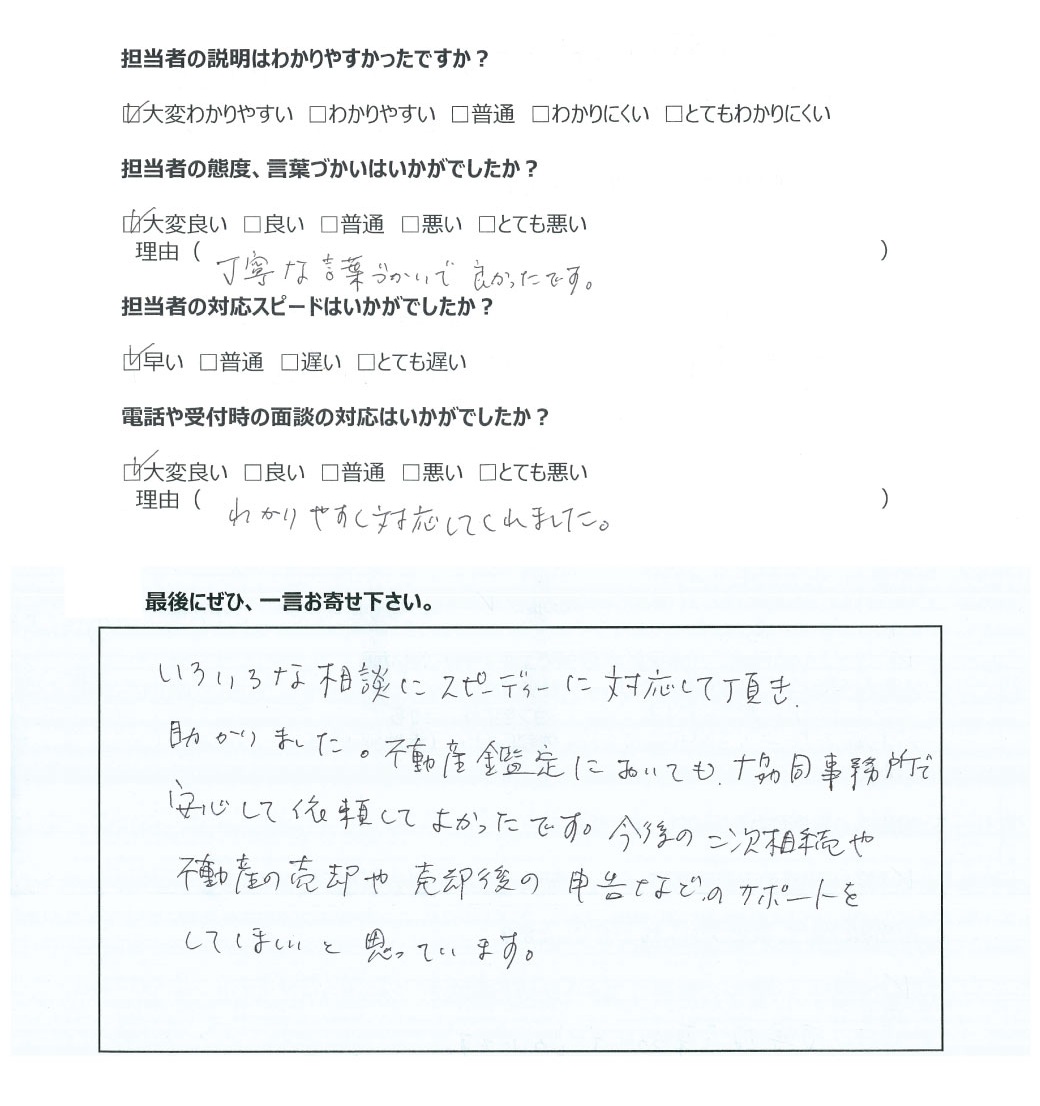 担当者の説明はわかりやすかったですか？
☑大変わかりやすい □わかりやすい □普通 □わかりにくい □とてもわかりにくい
担当者の態度、言葉づかいはいかがでしたか？
☑大変良い □良い □普通 □悪い □とても悪い
理由（ 丁寧な言葉づかいで良かったです。 ）
担当者の対応スピードはいかがでしたか？
☑早い □普通 □遅い □とても遅い
電話や受付時の面談の対応はいかがでしたか？
☑大変良い □良い □普通 □悪い □とても悪い
理由（ わかりやすく対応してくれました。 ）
最後にぜひ、一言お寄せ下さい。
いろいろな相談にスピーディーに対応して頂き、
助かりました。不動産鑑定においても、協同事務所で
安心して依頼してよかったです。今後の二次相続や
不動産の売却や売却後の申告などのサポートを
してほしいと思っています。